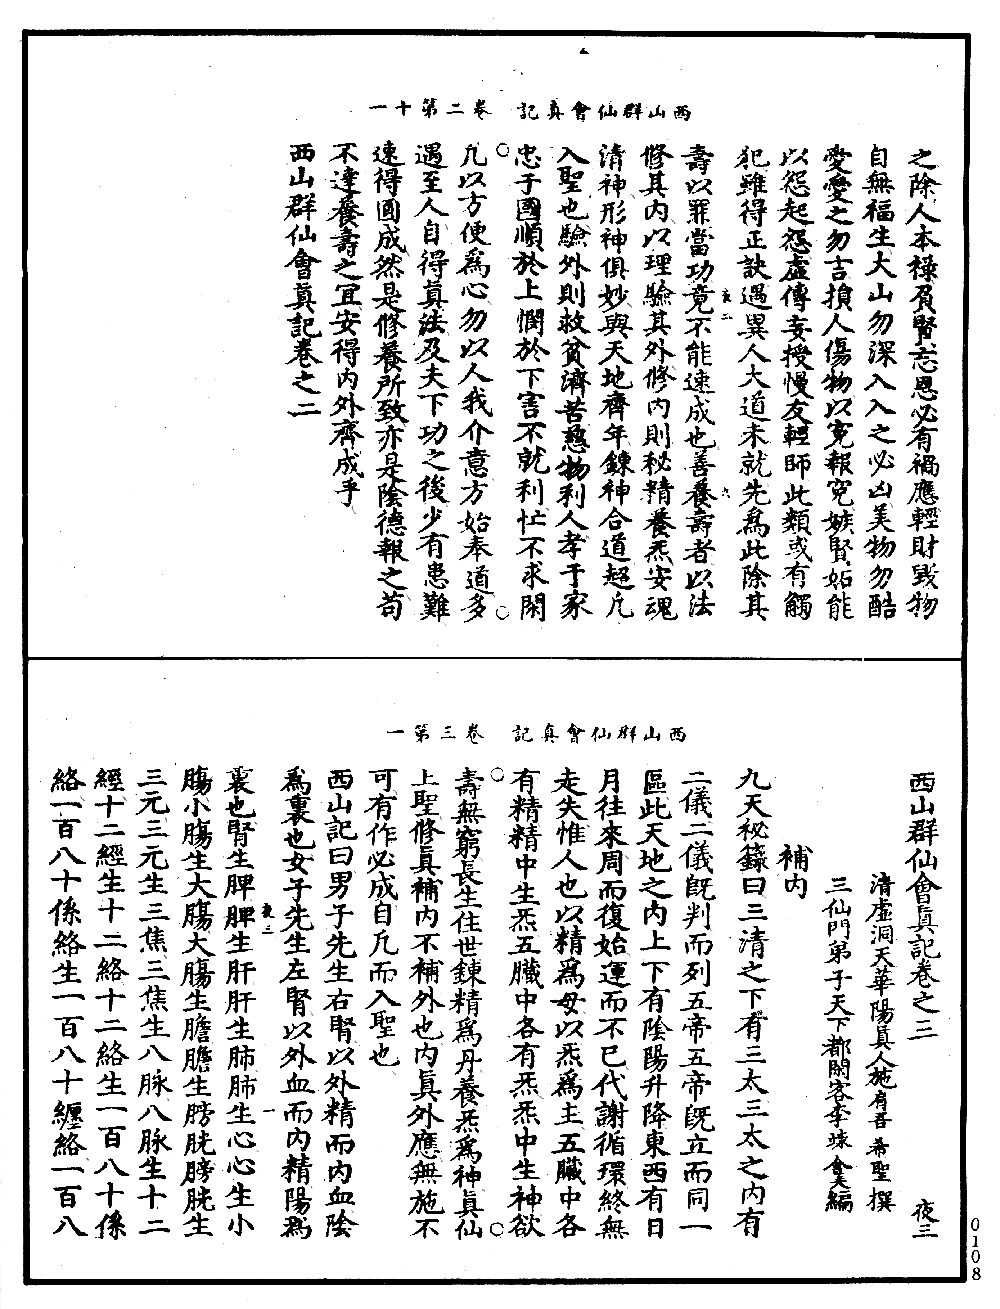 西山群仙會真記　卷二第十一
之除人本祿負賢忘恩必有禍應輕財毀物
自無福生大山勿深入入之必凶美物勿酷
愛愛之勿吉損人傷物以寃報寃嫉賢妬能
以怨起怨虛傳妄授慢友輕師此類或有觸
犯雖得正訣遇異人大道未就先爲此除其
壽以罪當功竟不能速成也善養壽者以法
修其内以理驗其外修内則秘精養炁安魂
清神形神俱妙與天地齊年鍊神合道超凡
入聖也驗外則救貧濟苦慈物利人孝于家
忠于國順於上憫於下害不就利忙不求閑
凡以方便爲心勿以人我介意方始奉道多
遇至人自得眞法及夫下功之後少有患難
速得圓成然是修養所致亦是陰德報之苟
不達養壽之宜安得内外齊成乎
西山群仙會眞記卷之二
西山群仙會真記　卷三第一
西山群仙會眞記卷之三　夜三
清虛洞天華陽眞人施肩吾希聖撰
三仙門弟子天下都閑客李竦全美編
補内
九天秘籙曰三清之下有三太三太之内有
二儀二儀旣判而列五帝五帝旣立而同一
區此天地之内上下有陰陽升降東西有日
月往來周而復始運而不已代謝循環終無
走失惟人也以精爲母以炁爲主五臟中各
有精精中生炁五臟中各有炁炁中生神欲
壽無窮長生住世鍊精爲丹養炁爲神眞仙
上聖修眞補内不補外也内眞外應無施不
可有作必成自凡而入聖也
西山記曰男子先生右腎以外精而内血陰
爲裏也女子先生左腎以外血而内精陽爲
裏也腎生脾脾生肝肝生肺肺生心心生小
膓小膓生大膓大膓生膽膽生膀胱膀胱生
三元三元生三焦三焦生八脉八脉生十二
經十二經生十二絡十二絡生一百八十係
絡一百八十係絡生一百八十纏絡一百八
0108